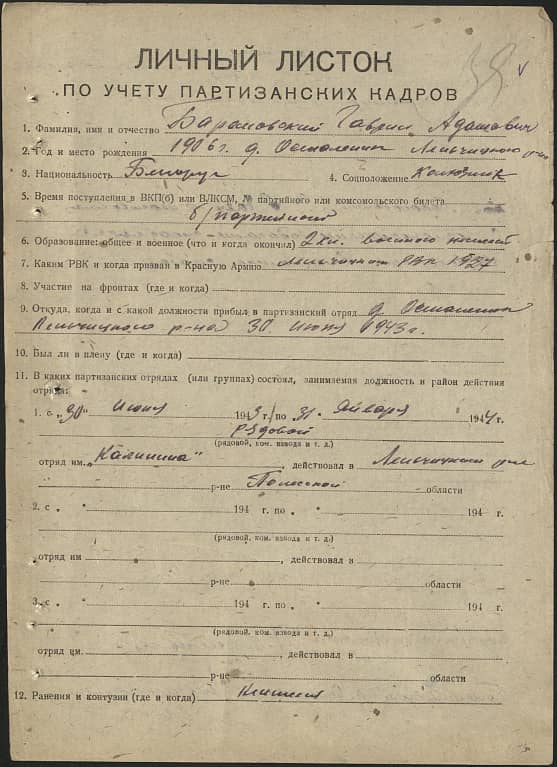 ЛИЧНЫЙ ЛИСТОК
ПО УЧЕТУ ПАРТИЗАНСКИХ КАДРОВ
1. Фамилия, имя и отчество Барановский Гаврил Адамович
2. Год и место рождения 1906 г. д. Осмоленик Лельчицкого р-на
3. Национальность Белорус 4. Соцположение Колхозник
5. Время поступления в ВКП(б) или ВЛКСМ, № партийного или комсомольского билета
б/партийный
6. Образование: общее и военное (что и когда окончил) 2 кл. военного
7. Каким РВК и когда призван в Красную Армию Лельчицким РВК 1927
8. Участие на фронтах (где и когда)
9. Откуда, когда и с какой должности прибыл в партизанский отряд д. Осмоленик
Лельчицкого р-на 30. июня 1943 г.
10. Был ли в плену (где и когда)
11. В каких партизанских отрядах (или группах) состоял, занимаемая должность и район действия
отряда:
1. с „30" июня 1943 г./по 31. января 1944 г.
Рядовой
(рядовой, ком. взвода и т. д.)
отряд им. „Калинина", действовал в Лельчицком р-не
р-не Полесской области
2. с „ " 194 г. по „ " 194 г.
(рядовой, ком. взвода и т. д.)
отряд им , действовал в
р-не области
3. с „ " 194 г. по „ " 194 г.
(рядовой, ком. взвода и т. д.)
отряд им. , действовал в
р-не области
12. Ранения и контузии (где и когда)